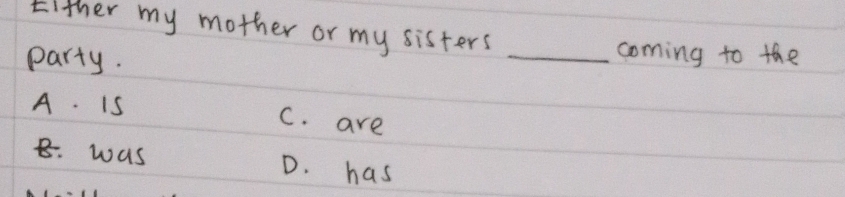 Either my mother or my sisters ______ coming to the
party.
A. is
C. are
B. was
D. has